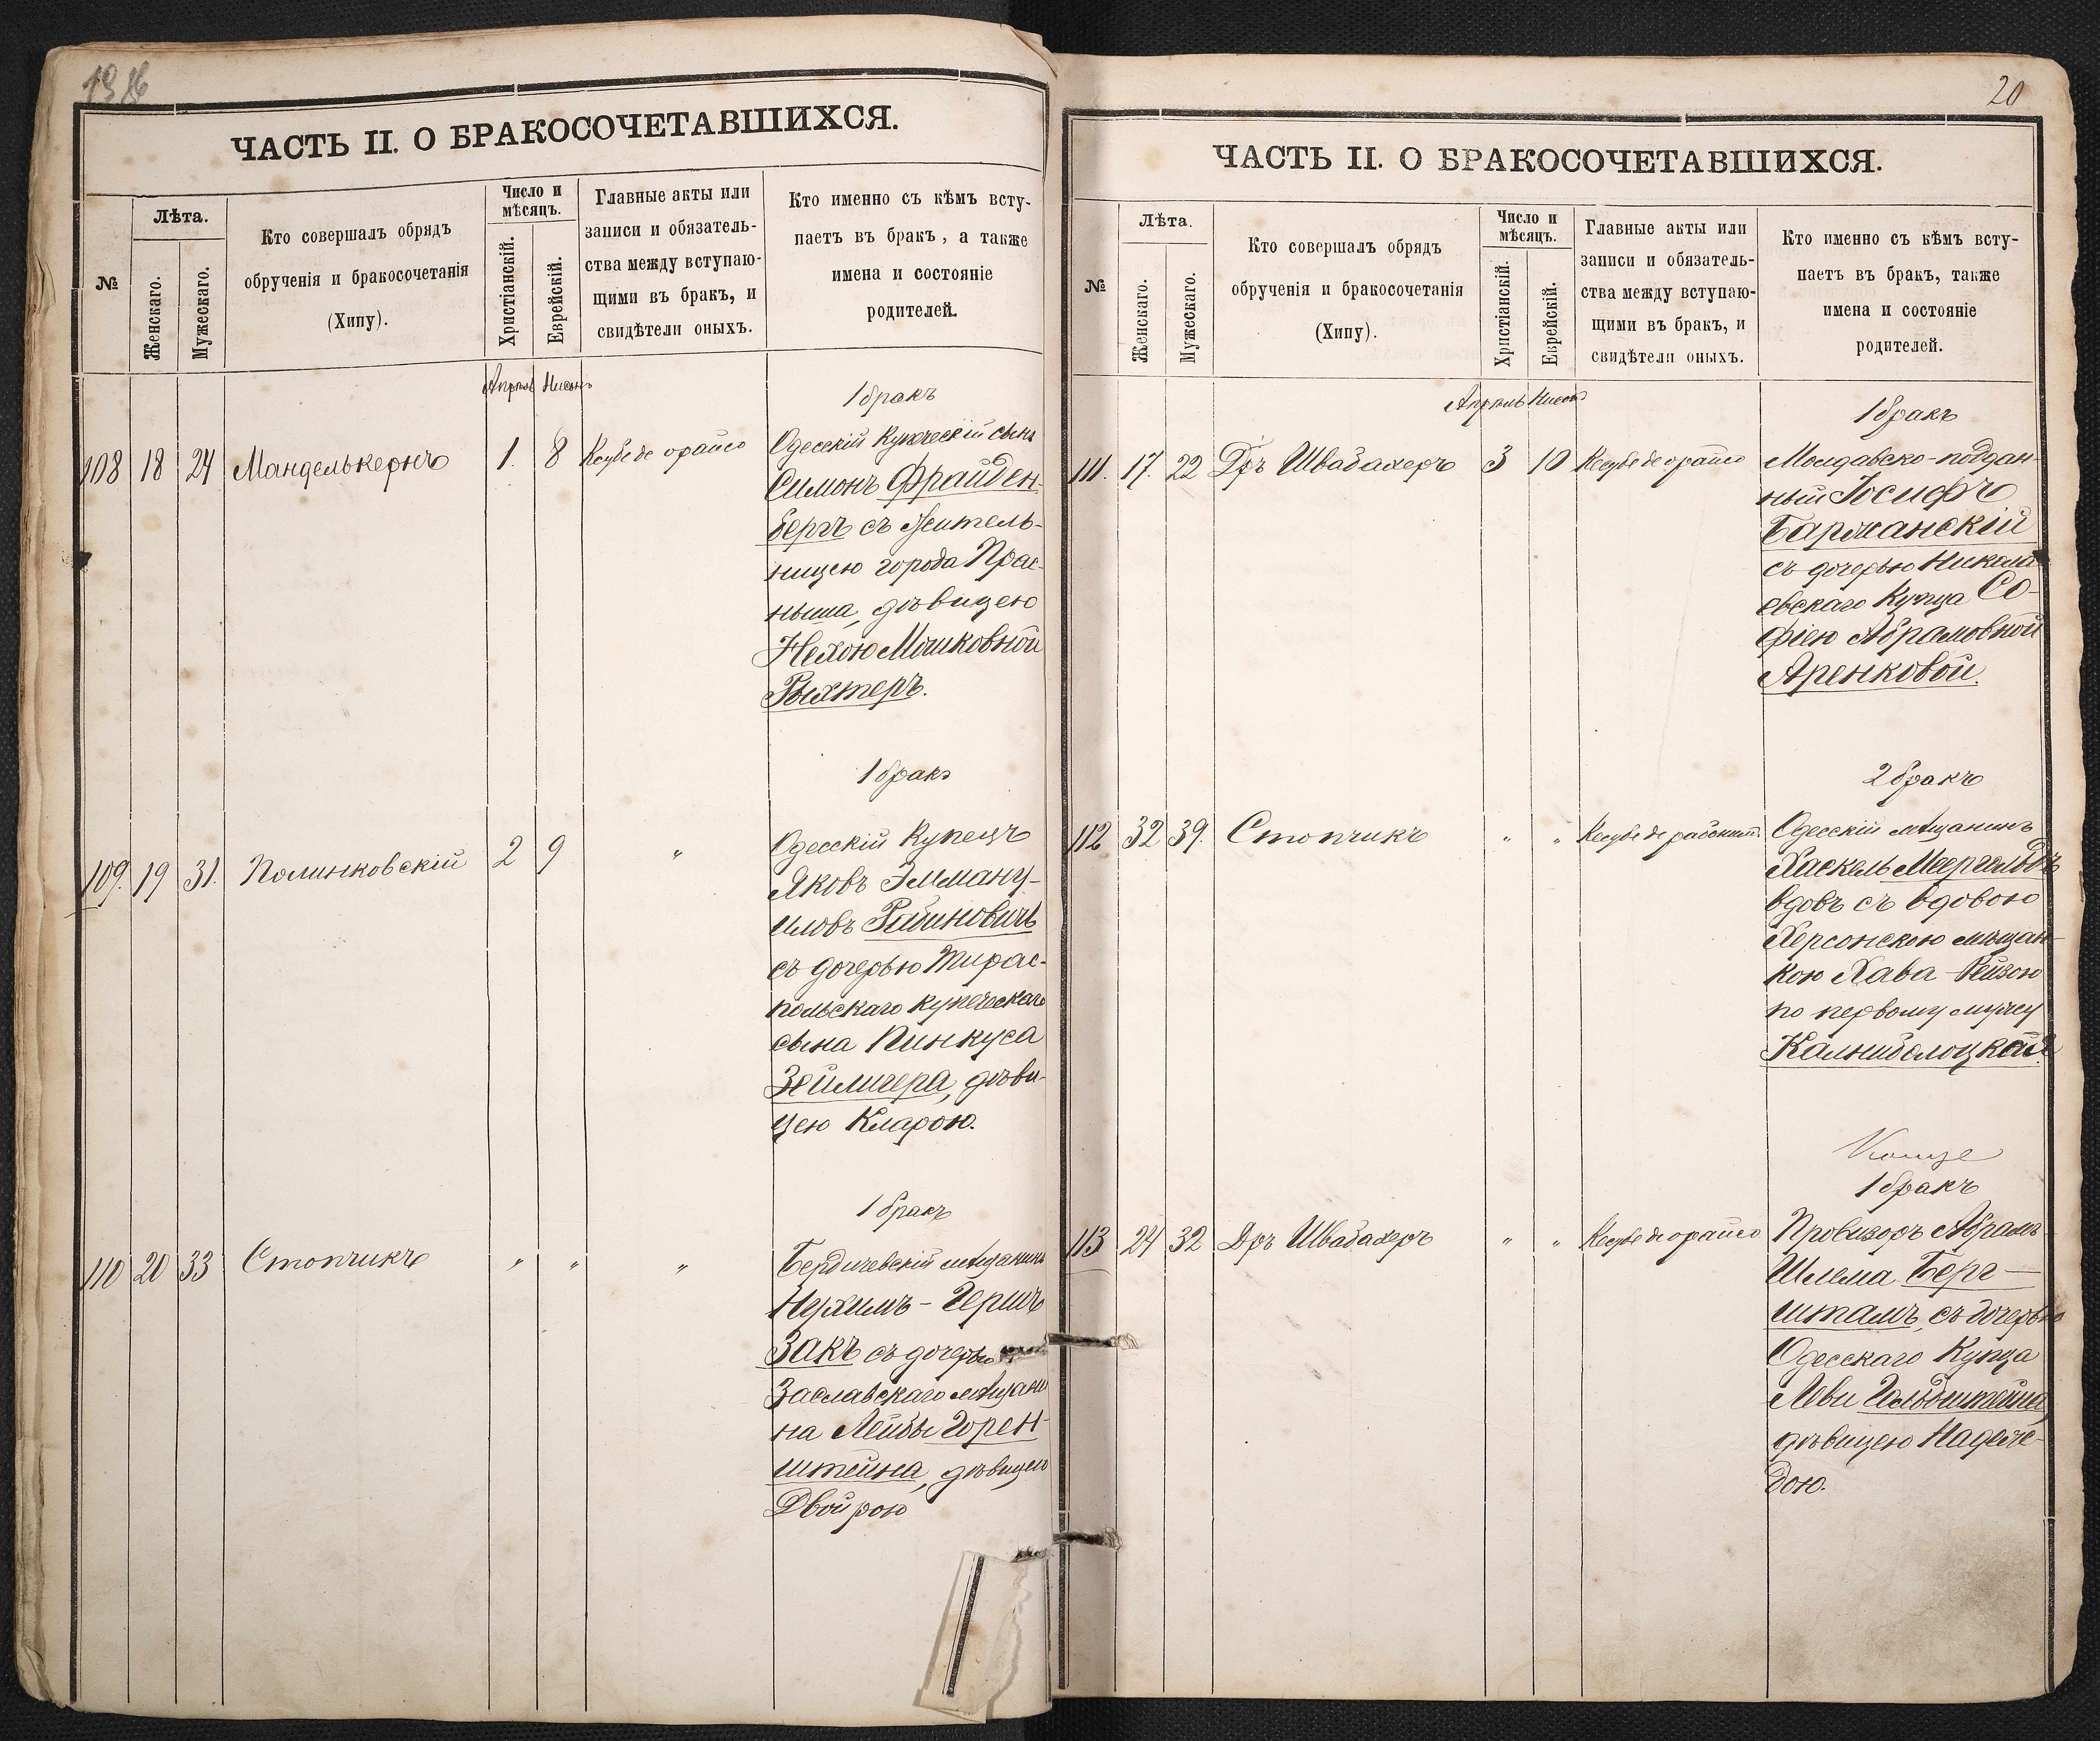 19
ЧАСТЬ II. О БРАКОСОЧЕТАВШИХСЯ.
№
Лѣта.
Женскаго.
Мужескаго.
Кто совершалъ обрядъ
обрученія и бракосочетанія
(Хипу).
Число и
мѣсяцъ.
Христіанскій.
Еврейскій.
Главные акты или
записи и обязатель-
ства между вступаю-
щими въ бракъ, и
свидѣтели оныхъ.
Кто именно съ кѣмъ всту-
паетъ въ бракъ, а также
имена и состояніе
родителей.
Апрѣль Нисонъ
1 бракъ
108 18 24 Манделькернъ 1. 8 Ксубе де орайсо
Одесскій Купеческій сынъ
Симонъ Фрайден-
бергъ съ жительь-
ницею города Прас-
ныша, дѣвицею
Нехою Мошковной
Рыхтеръ.
1 бракъ
109. 19 31. Полинковскій 2 9 "
Одесскій Купецъ
Яковъ Эмману-
иловъ Рабиновичъ
съ дочерью Тирас-
польскаго купеческаго
сына Пинкуса
Зейлигера, дѣви-
цею Кларою.
1 бракъ
110 20 33 Стопчикъ " " "
Бердичевскій мѣщанинъ
Нухимъ-Гершъ
Закъ съ дочерью
Заславскаго мѣщани
на Лейбы Горен-
штейна, дѣвицею
Двойрою
20
ЧАСТЬ II. О БРАКОСОЧЕТАВШИХСЯ.
№
Лѣта.
Женскаго.
Мужескаго.
Кто совершалъ обрядъ
обрученія и бракосочетанія
(Хипу).
Число и
мѣсяцъ.
Христіанскій.
Еврейскій.
Главные акты или
записи и обязатель-
ства между вступаю-
щими въ бракъ, и
свидѣтели оныхъ.
Кто именно съ кѣмъ всту-
паетъ въ бракъ, также
имена и состояніе
родителей.
Апрѣль Нисонъ
1 бракъ
111. 17. 22 Дръ Швабахеръ 3 10 Ксубе де орайсо
Молдавско-поддан-
ный Іосифъ
Баржанскій
съ дочерью Никола
евскаго Купца Со-
фіею Абрамовной
Аренковой.
2 бракъ
112 32 39. Стопчикъ " "
Одесскій мѣщанинъ
Хаскель Меергольдъ
вдовъ съ вдовою
Херсонскою мѣщан-
кою Хава-Рейзою
по первому мужу
Калниболоцкой
1 бракъ
113 24 32 Дръ Швабахеръ " " Ксубе де орайсо
Провизоръ Абрамъ
Шлема Берг-
штамъ, съ дочерью
Одесскаго Купца
Леви Гольдштейна,
дѣвицею Надеж-
дою.